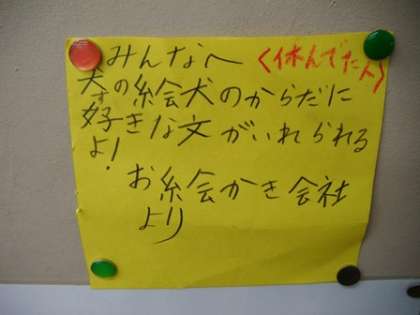 みんなへ 〈休んでた人〉
犬の絵犬のからだに
す
好きな文がいれられる
よ!
お絵かき会社
より